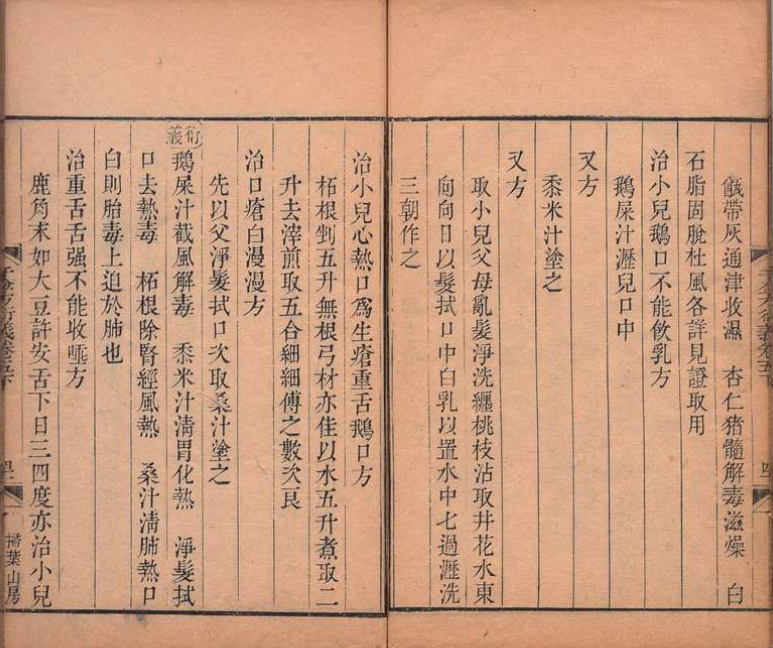 甑帶灰通津收濕　杏仁猪髓解毒滋燥　白
石脂固脫杜風各詳見證取用
治小兒鵝口不能飲乳方
鵝屎汁瀝兒口中
又方
黍米汁塗之
又方
取小兒父母亂髮淨洗纏桃枝沾取井花水東
向向日以髮拭口中白乳以置水中七過瀝洗
三朝作之
治小兒心熱口爲生瘡重舌鵝口方
柘根剉五升無根弓材亦佳以水五升煮取二
升去滓煎取五合細細傅之數次良
治口瘡白漫漫方
先以父淨髮拭口次取桑汁塗之
衍義
鵝屎汁截風解毒　黍米汁淸胃化熱　淨髮拭
口去熱毒　柘根除腎經風熱　桑汁淸肺熱口
白則胎毒上迫於肺也
治重舌舌强不能收唾方
鹿角末如大豆許安舌下日三四度亦治小兒
千金方衍義卷五下
掃葉山房